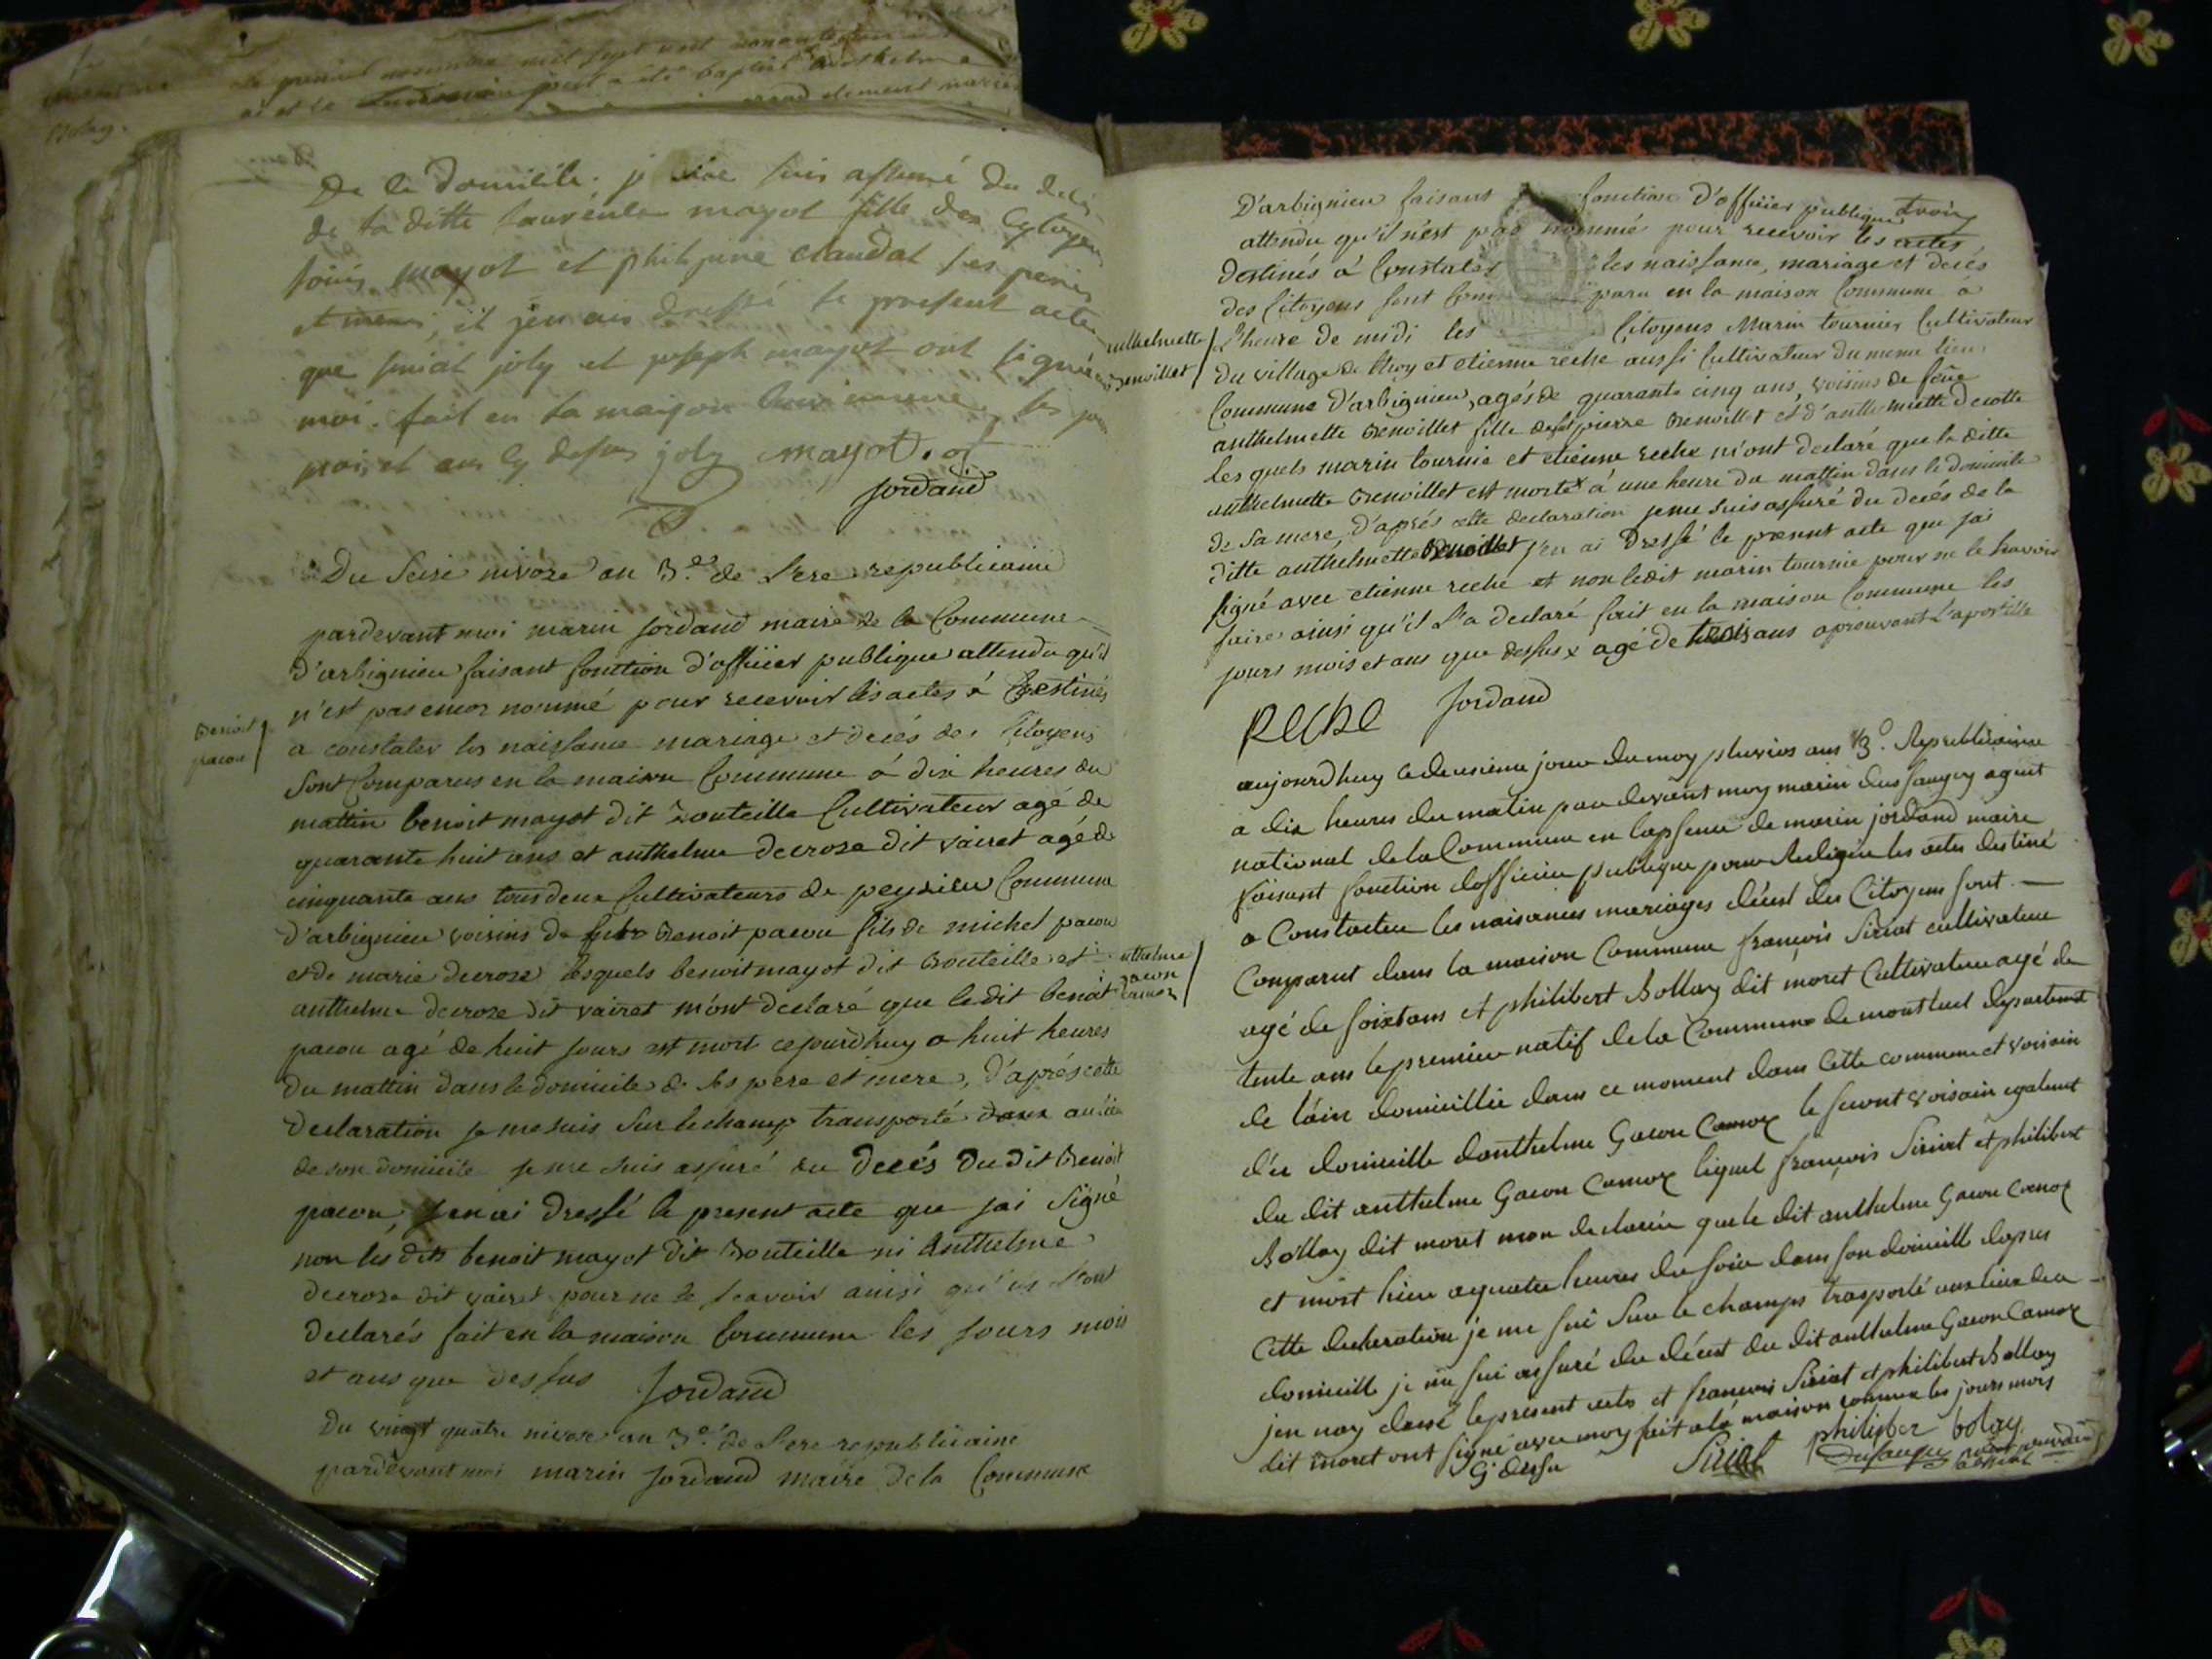 de le domicile, je me suis assuré du decés
de la ditte laurence mayot fille des Cytoyens
mayot et philipine claudat ses peres
et mere, et j'en ais dressé le present acte
que siriat joly et joseph mayot ont signé
moi. fait en la maison Commune, les jour
mois et an cy dessus joly mayot
Jordand
Du seise nivoze an 3.e de l'ere republicaine
pardevant moi marin Jordand maire de la Commune
d'arbignieu faisant fonction d'officier publique attendu qu'il
n'est pas encor nommé pour recevoir les actes à destinés
a constater les naissance mariage et decés des Citoyens
Benoit
pacou
sont Comparus en la maison Commune á dix heures du
mattin benoit mayot dit Bouteille Cultivateur agé de
quarante huit ans et anthelme decroze dit vairet agé de
cinquante ans tous deux Cultivateurs de peyzieu Commune
d'arbignieu voisins de Benoit pacou fils de michel pacou
et de marie decroze lesquels benoit mayot dit Bouteille et
anthelme decroze dit vairet m'ont declaré que le dit benoit
pacou agé de huit jours est mort cejourdhuy a huit heures
du mattin dans le domicile de ses pere et mere, d'aprés cette
declaration je me suis sur le champ transporté au lieu
de son domicile je me suis assuré du decés du dit Benoit
pacou, j'en ai dressé le present acte que jai signé
non les dits benoit mayot dit Bouteille ni Anthelme
decroze dit vairet pour ne le scavoir ainsi qu'ils l'ont
declarés fait en la maison Commune les jours mois
et ans que dessus Jordand
Du vingt quatre nivoze an 3.e de l'ere republicaine
pardevant moi marin Jordand maire de la Commune
D'arbignieu faisant fonction d'officier publique
attendu qu'il n'est pas nommé pour recevoir les actes
destinés á Constater les naissance, mariage et decés
des Citoyens sont Comparu en la maison Commune a
anthelmette
Benoillet
l'heure de midi les Citoyens Marin tournier Cultivateur
du village de thoy et etienne reche aussi Cultivateur du meme lieu
Commune D'arbignieu, agés de quarante cinq ans, voisins de feüe
anthelmette Benoillet fille de feu pierre Benoillet et d'anthelmette decotte
les quels marin tournié et etienne reche m'ont declaré que la ditte
anthelmette Benoillet est morte x á une heure du mattin dans le domicile
de sa mere, d'aprés cette declaration je me suis assuré du decés de la
ditte anthelmette Benoillet j'en ai Dressé le present acte que jai
signé avec etienne reche et non ledit marin tournie pour ne le scavoir
faire ainsi qu'il l'a declaré fait en la maison Commune les
jours mois et ans que dessus x agé de trois ans aprouvant l'apostille
Reche Jordand
aujourdhuy ce deusieme jour du moy pluvios ans 3.e Republicaine
a dix heures du matin par devant moy marin dusaugey agent
national de la Commune en lapsence de marin jordand maire
faisant fonction dofficier publique pour Rediger les actes destiné
a Constater les naisances mariages décest des Citoyens sont
anthelme
gacon
Camoz
Comparut dans la maison Commune françois Siriat cultivateur
agé de soixt ans et philibert Bollay dit moret Cultivateur agé de
tente ans le premier natif de la Commune de montluel departement
de láin domicillié dans ce moment dans cette commune et voisain
dú domicille danthelme Gacon Camoz le segont voisain egalement
du dit anthelme Gacon Camoz lequel françois Siriat et philibert
Bollay dit moret mon declarée que le dit anthelme Gacon Camoz
et mort hier aquatre heures du soir dans son domicille dapres
Cette decleration je me sui sur le champs trasporté aux lieu du
domicille je me sui assuré du décest du dit anthelme Gacon Camoz
jen nay dresé le present acte et françois Siriat et philibert Bollay
dit moret ont signé avec moy fait a la maison commune les jours mois
Cy dessu Siriat philiber bolay
Dusaugey